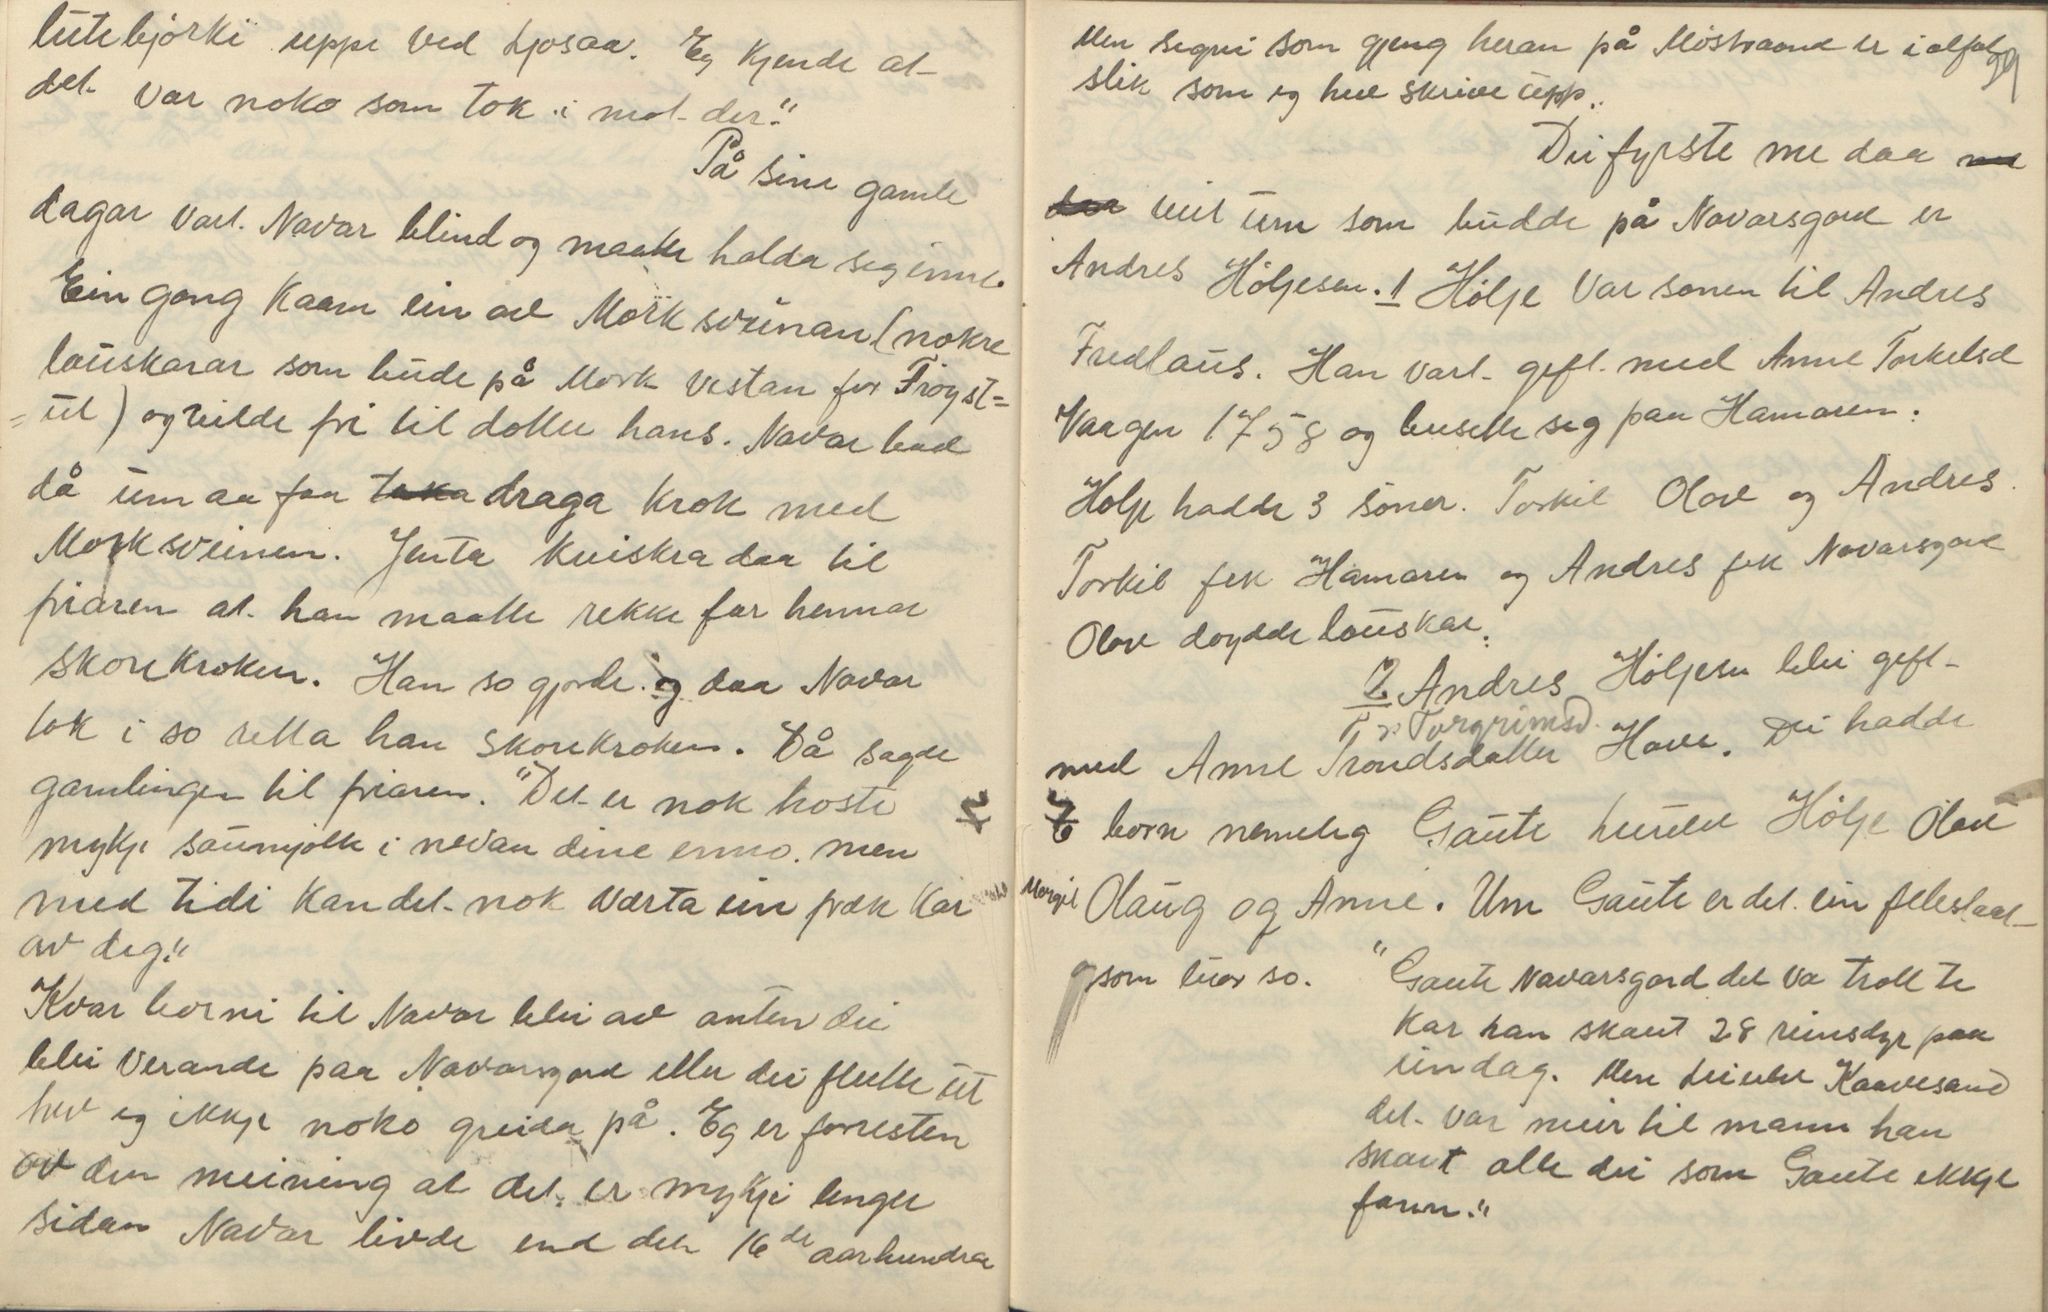 lutebjørki uppe ved Ljosaa. Eg kjende at
det var noko som tok i mot der."
På sine gamle
dagar vart Navar blind og maatte halda seg inne.
Ein gong kaam ein av Mork sveinan (nokre
lauskarar som bude på Mork vestan for Frøyst=
=ul) og vilde fri til dotter hans. Navar bad
då um aa faa taka draga krok med
Morksveinen. Jenta kviskra daa til
friaren at han maatte rekke far hennar
skorekroken. Han so gjorde og daa Navar
tok i so retta han skorekroken. Då sagde
gamlingen til friaren. "Det er nok hoste
mykje saumjølk i nevan dine enno. men
med tidi kan det nok værta ein fræk kar
av deg."
Kvar borni til Navar blei av anten dei
blei verande paa Navarsgard eller dei flutte ut
hev eg ikkje noko greida på. Eg er forresten
av den meining at det er mykje lenger
sidan Navar livde end det 16de aarhundra
Men segni som gjeng heran på Møstraand er i alfal
slik som eg hev skrive upp.
Dei fyrste me daa me
daa veit um som budde på Navarsgard er
Andres Høljesen. 1 Hølje var sonen til Andres
Fredlaus. Han vart gift med Anne Torkelsd
Vaagen 1758 og busette seg paa Hamaren.
Holje hadde 3 søner. Torkil Olav og Andres.
Torkil fek Hamaren og Andres fek Navarsgard
Olav døydde lauskar.
2 Andres Høljesen blei gift
Torgrimsd.
med Anne Trondsdatter Hove. Dei hadde
7 born nemeleg Gaute Hølje Olav
Margit Olaug og Anne. Um Gaute er det ein
som lær so. "Gaute Navarsgard det va troll te
kar han skaut 28 reinsdyr paa
eindag. Men Kaavesand
det var meir til mann han
skaut alle dei som Gaute ikkje
fann."